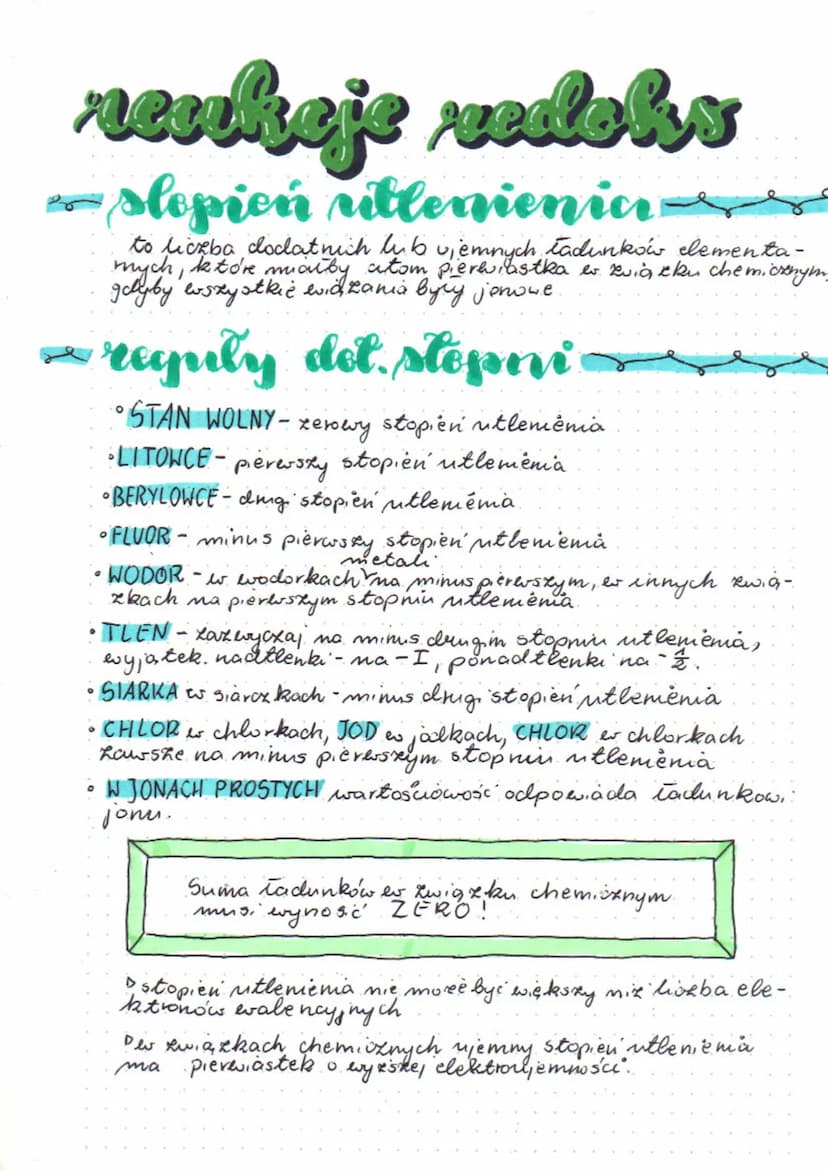 reakcje redoks
stopień utlenienia
to liczba dodatnich lub ujemnych ładunków elementa-
rnych, które miałby atom pierwiastka w związku chemicznym,
gdyby wszystkie wiązania były jonowe
reguły dot. stopni
° STAN WOLNY - zerowy stopień utlenienia
° LITOWCE - pierwszy stopień utlenienia
° BERYLOWCE - drugi stopień utlenienia
° FLUOR - minus pierwszy stopień utlenienia
metali
• WODÓR - w wodorkach na minus pierwszym, w innych zwią-
zkach na pierwszym stopniu utlenienia
• TLEN - zazwyczaj na minus drugim stopniu utlenienia,
wyjątek. nadtlenki - na -I, ponadtlenki na -½.
• SIARKA w siarczkach - minus drugi stopień utlenienia
• CHLOR w chlorkach, JOD w jodkach, CHLOR w chlorkach
zawsze na minus pierwszym stopniu utlenienia
• W JONACH PROSTYCH wartościowość odpowiada ładunkowi
jonu.
Suma ładunków w związku chemicznym
musi wynosić ZERO!
▷ stopień utlenienia nie może być większy niż liczba ele-
ktronów walencyjnych
▷ w związkach chemicznych ujemny stopień utlenienia
ma pierwiastek o wyższej elektroujemności.